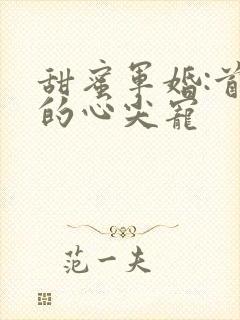 甜蜜军婚:首
的心尖宠
范一夫